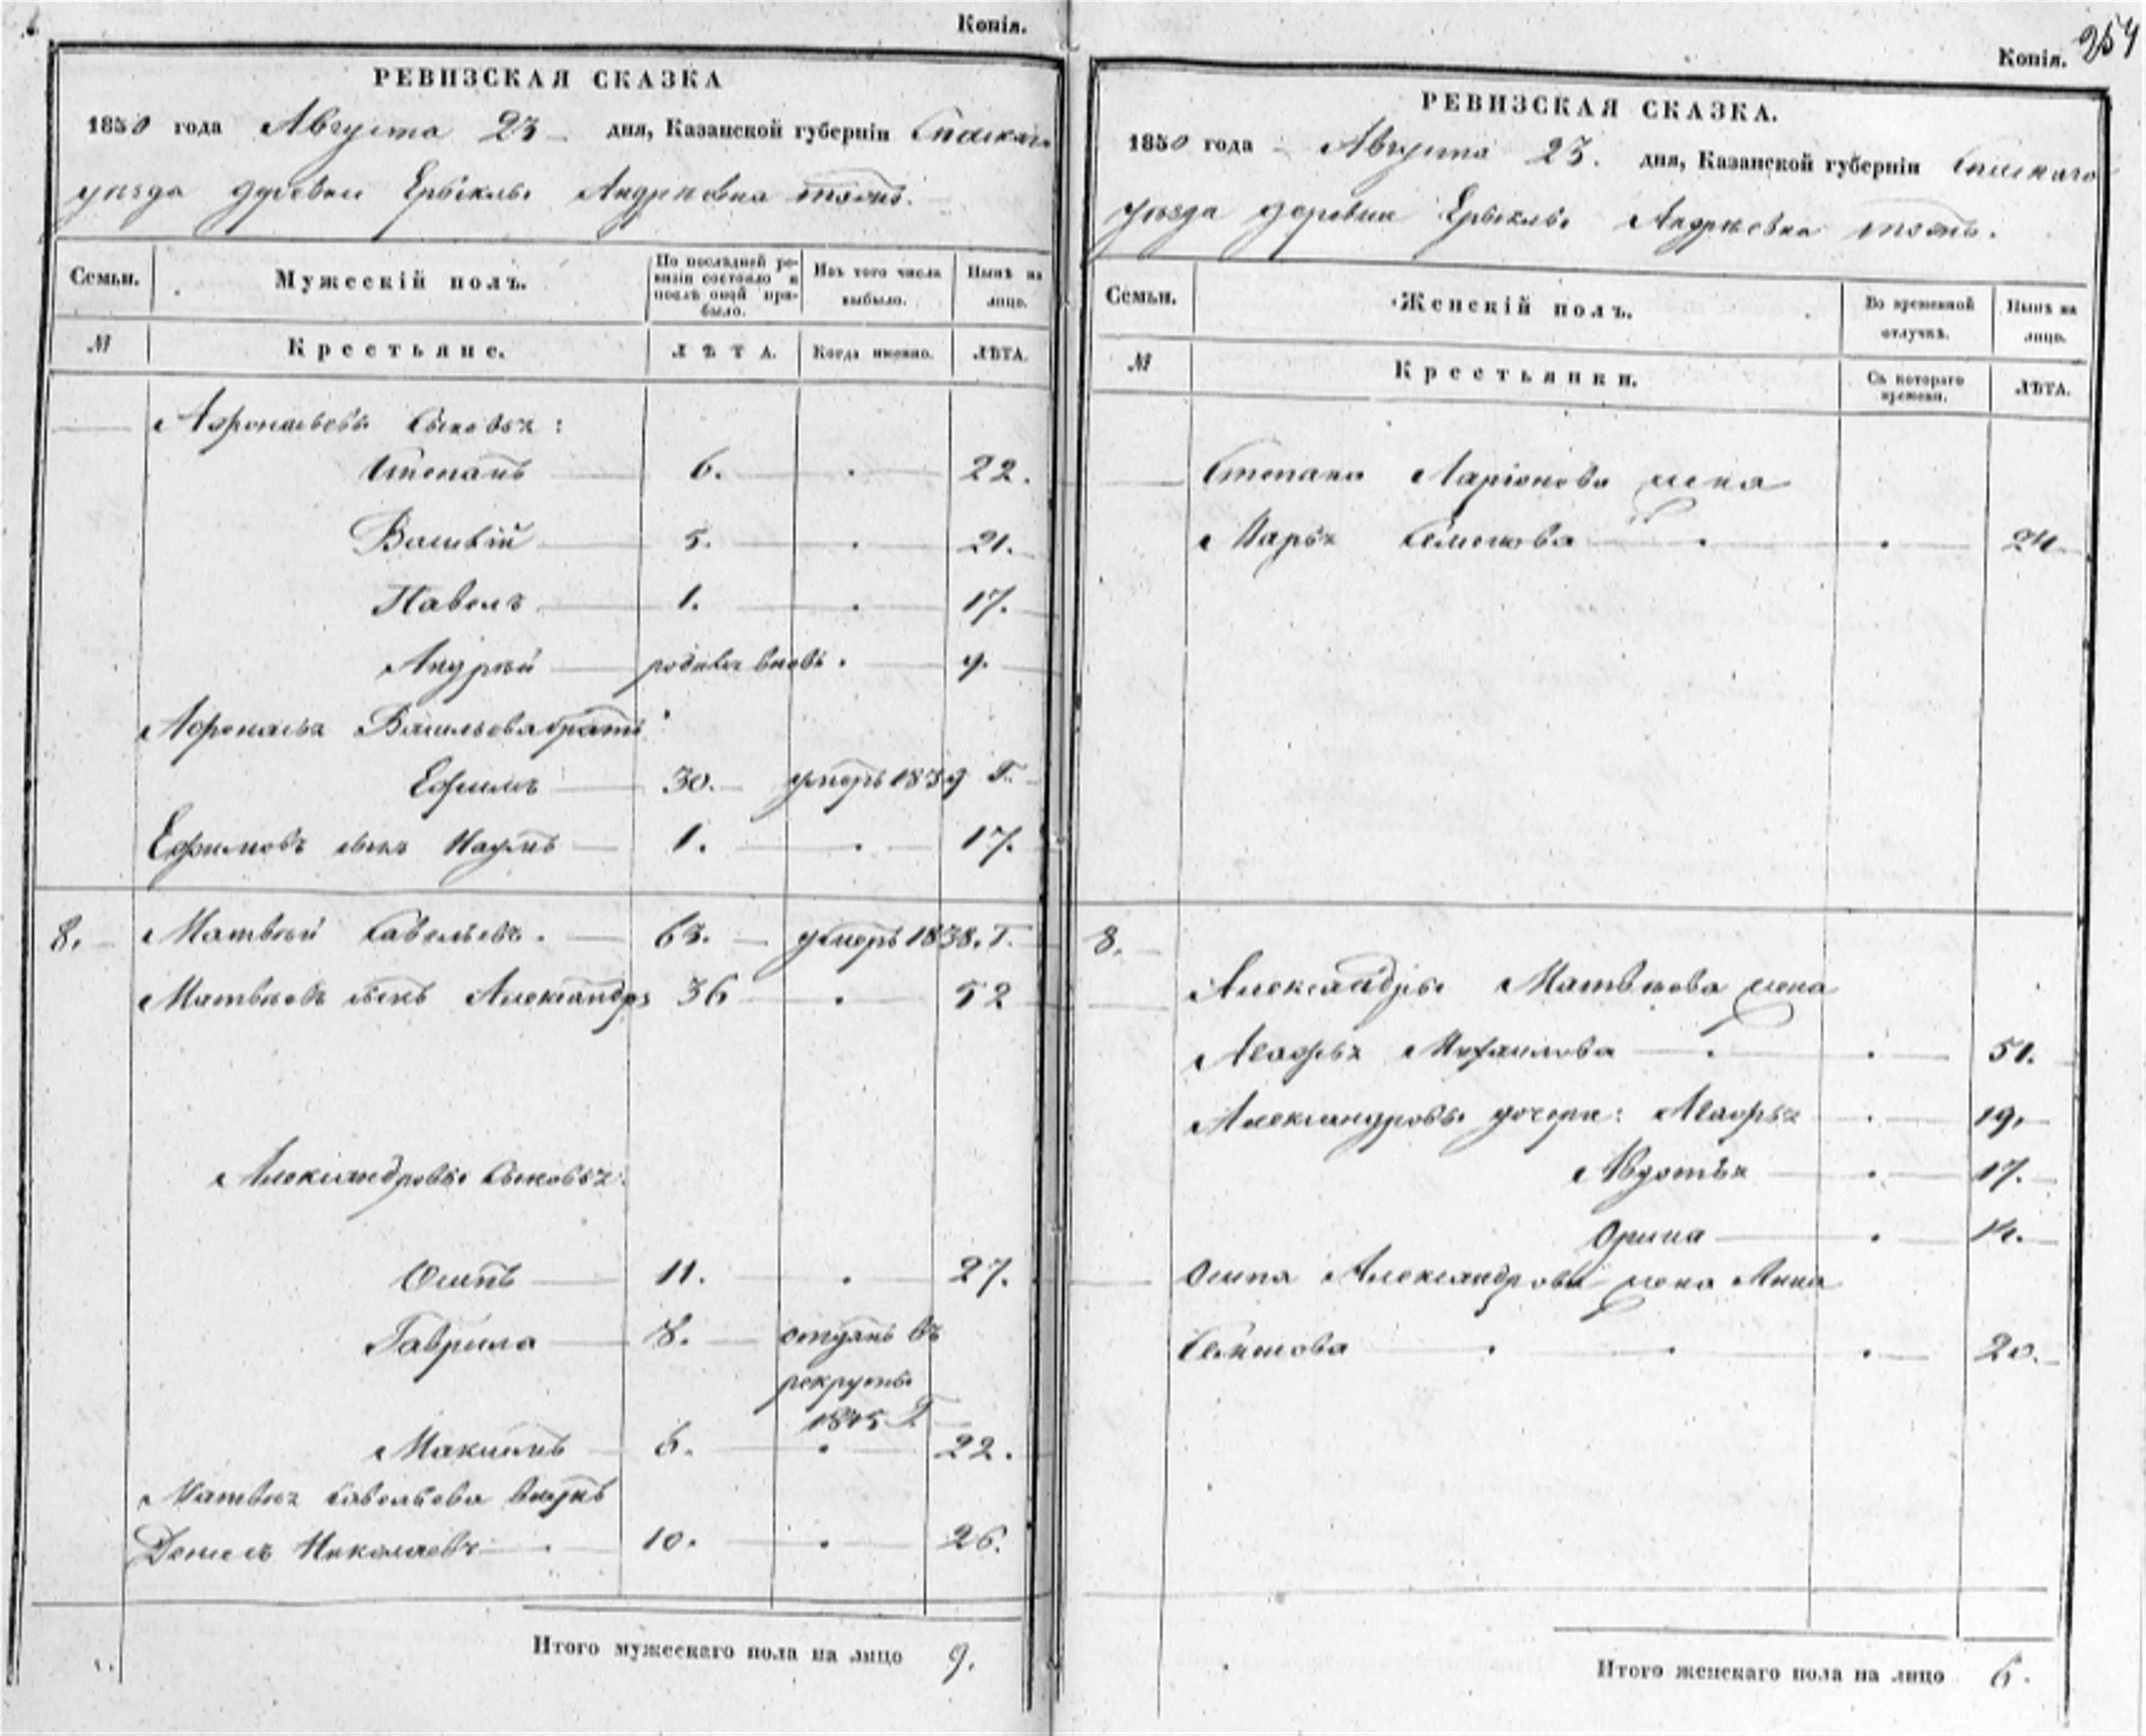 Копія.
РЕВИЗСКАЯ СКАЗКА
1850 года Августа 23 дня, Казанской губерніи Спаскаго
уѣзда деревни Ерыклы Андрѣевка тожъ.
Семьи.
Мужескій полъ.
По послѣдней ревизіи состояло и послѣ оной прибыло.
Изъ того числа выбыло.
Нынѣ на лицо.
№
Крестьяне.
ЛѢТА.
Когда именно.
ЛѢТА.
Сыновья:
Степанъ 6. 22.
Василій 5. 21.
Павелъ 1. 17.
Андрѣй родился вновь. 9.
Афонасья Васильева братъ
Ефимъ 30. умеръ 1839 Г.
Ефимовъ сынъ Наумъ 1. 17.
8. Матвѣй Савельевъ. 63. умеръ 1838. Г.
Матвѣевъ сынъ Александръ 36 52
Александровы Сыновья:
Осипъ 11. 27.
Гаврила 8. отданъ въ
рекруты
1845 Г
Максимъ 6. 22.
Матвѣя Савельева внукъ
Николаевъ 10. 26.
Итого мужескаго пола на лицо 9.
254
Копія.
РЕВИЗСКАЯ СКАЗКА.
1850 года Августа 23. дня, Казанской губерніи Спаскаго
уѣзда деревни Ерыклы Андрѣевка тожъ.
Семьи.
Женскій полъ.
Во временной отлучкѣ.
Нынѣ на лицо.
№
Крестьянки.
Съ котораго времени.
ЛѢТА.
Степана Ларіонова жена
Марья Семенова 24.
8.
Александры Матвѣева жена
Мафрья Михаилова 51.
Александровы дочери: Мафрья 19.
Авдотья 17.
Орина 14.
Осипа Александрова жена Анна
Семенова 20.
Итого женскаго пола на лицо 6.